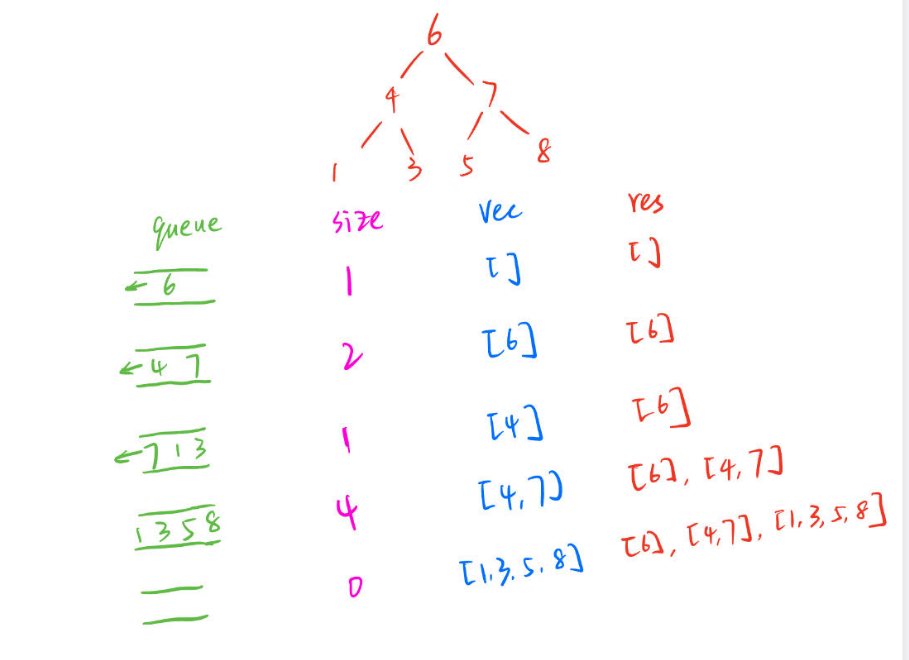 6
4 7
1 3 5 8
queue size vec res
← 6 1 [] []
← 4 7 2 [6] [6]
← 7 1 3 1 [4] [6]
1 3 5 8 4 [4,7] [6], [4,7]
0 [1,3,5,8] [6], [4,7], [1,3,5,8]